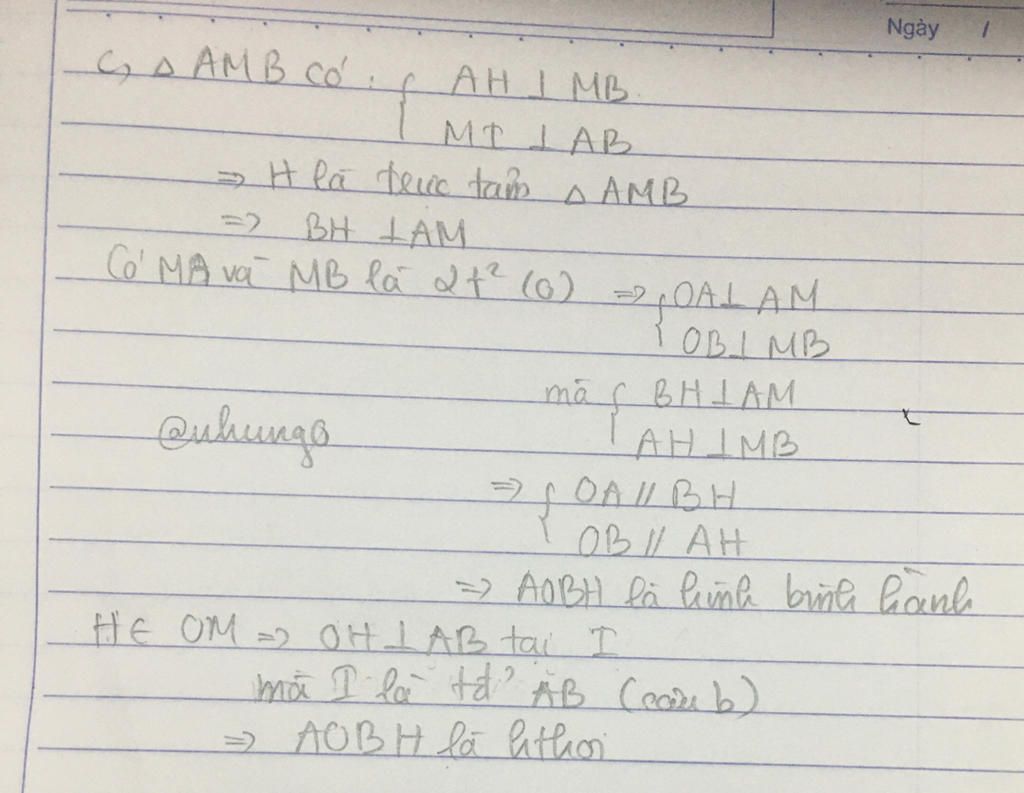 Ngày /
c, △ AMB có : { AH ⊥ MB
MI ⊥ AB
=> H là trực tâm △ AMB
=> BH ⊥ AM
Có MA và MB là 2t² (O) => { OA ⊥ AM
OB ⊥ MB
mà { BH ⊥ AM
AH ⊥ MB
@nhungs
=> { OA // BH
OB // AH
=> AOBH là hình bình hành
H ∈ OM => OH ⊥ AB tại I
mà I là tđ' AB (câu b)
=> AOBH là hthoi